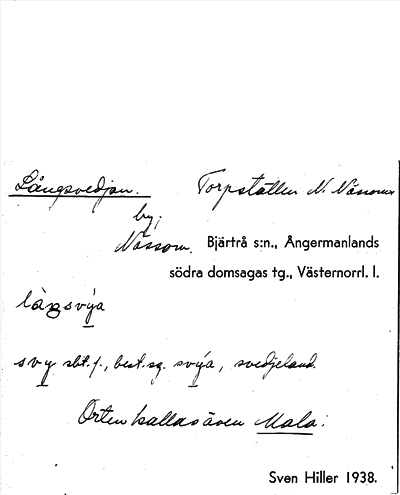 Långsvedjan. Torpställe N. Nässom
by,
Nässom. Bjärtrå s:n., Ångermanlands
södra domsagas tg., Västernorrl. l.
làŋsvýa
svy sbt. f., best. sg. svýa, svedjeland.
Orten kallas även Mala.
Sven Hiller 1938.